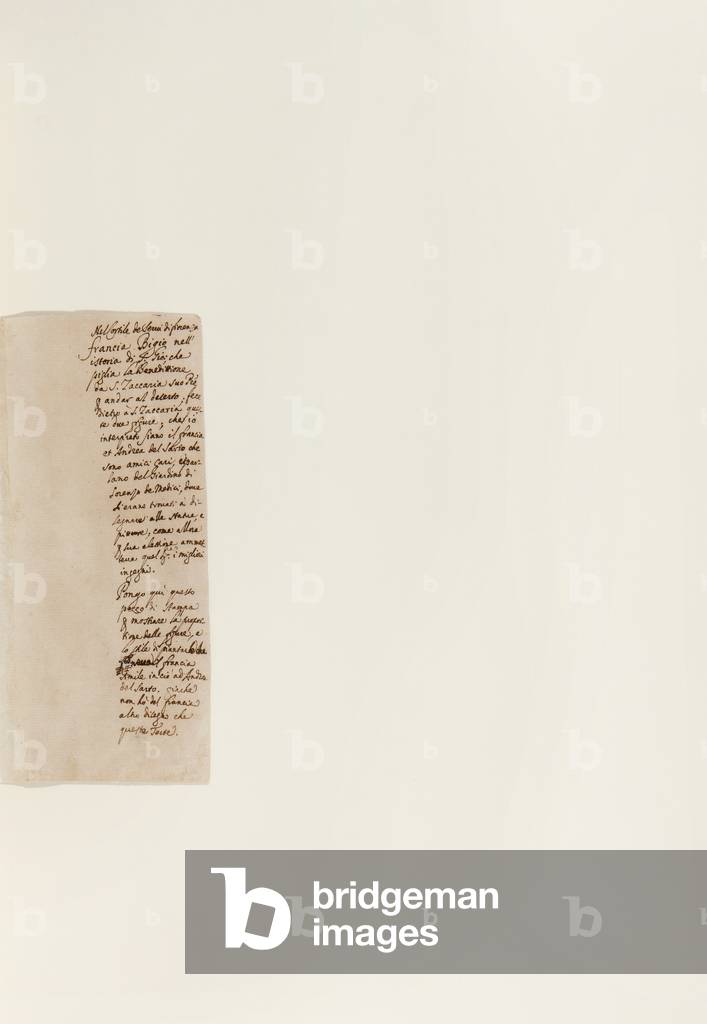 Nel Cortile de Servi di firenza
francia Bigio nell'
istoria di S. Gio: che
piglia la Beneditione
da S. Zaccaria suo Pre
p andar al deserto; fece
dietro à S. Zaccaria ques
te due figure; che io
interpreto siano il francia
et Andrea del Sarto che
sono amici cari, e
lano del Giardino di
Lorenzo de Medici, dove
si erano trovati à di-
segnare alle statue, e
pitture, come allora
p sua elettione ammet
teva quel i migliori
ingegni.
Pongo qui questo
pezzo di stampa
p mostrare la propor
tione delle figure, e
lo stile di che
il francia
simile in ciò ad Andrea
del Sarto. giache
non hò del francia
altro disegno che
queste Teste.
b bridgeman
images